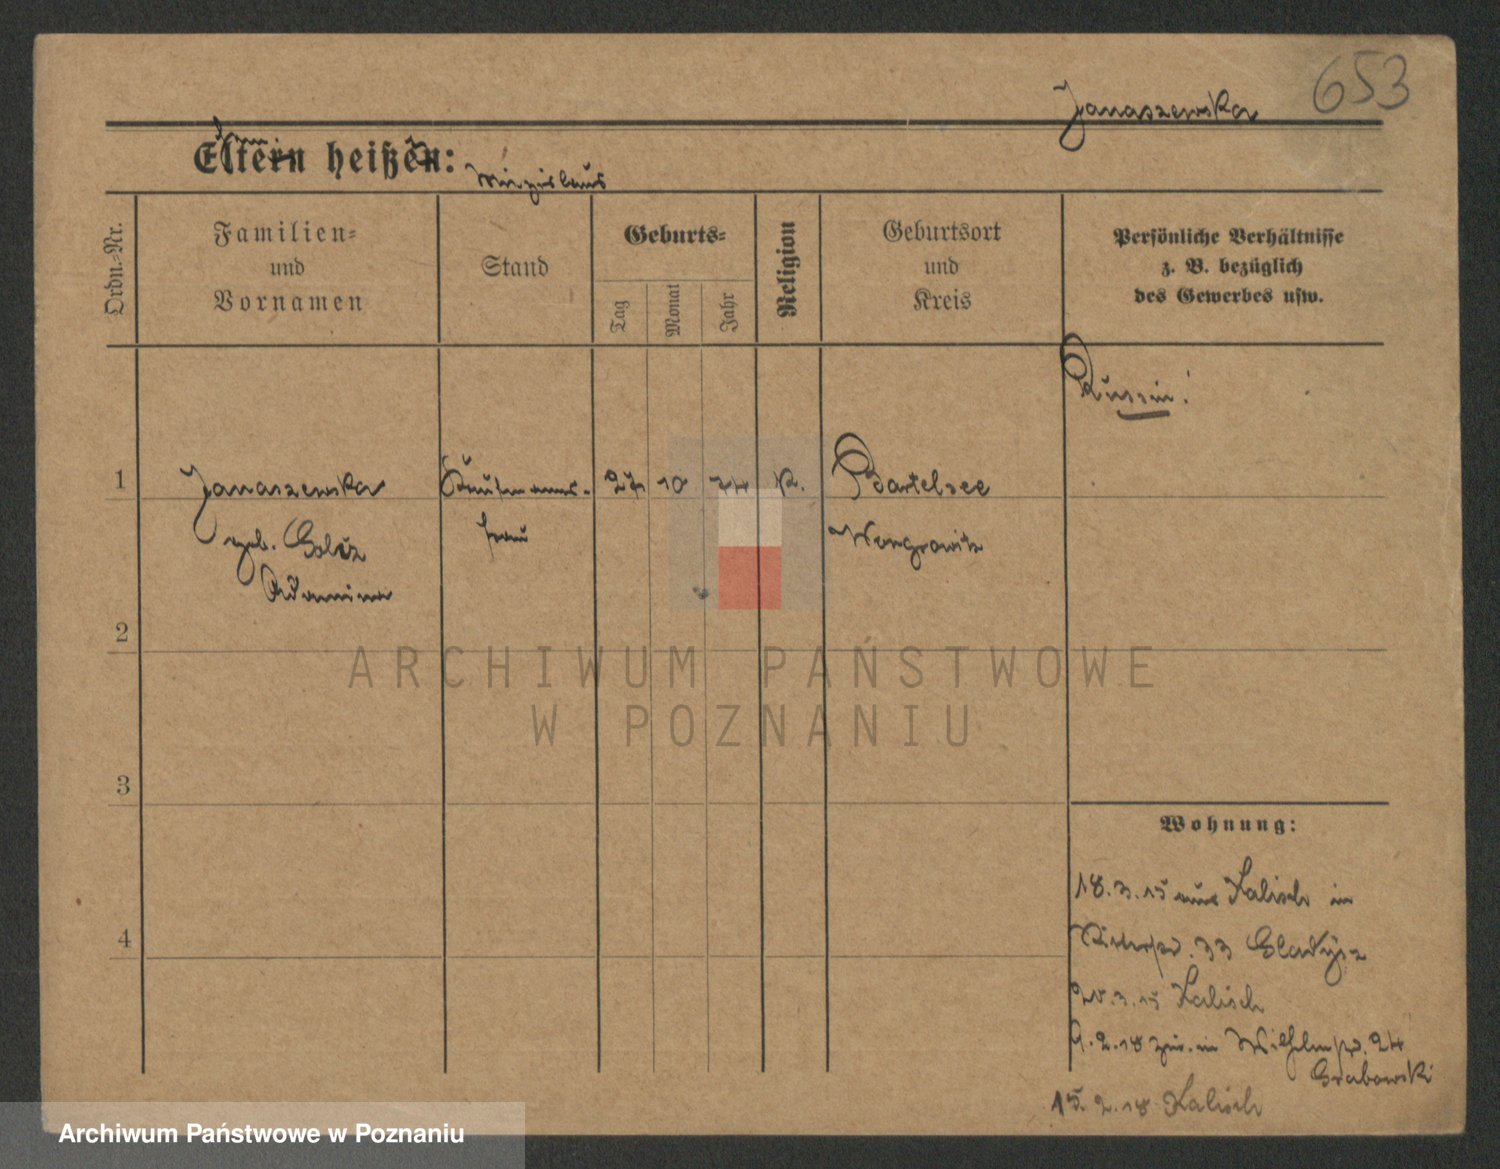 653
Janaszewska
Eltern heißen:
Ordn.-Nr.
Familien-
und
Vornamen
Stand
Geburts-
Tag
Monat
Jahr
Religion
Geburtsort
und
Kreis
Persönliche Verhältnisse
z. B. bezüglich
des Gewerbes usw.
Russin!
1
Janaszewska
Kaufmanns-
27
10
74
K.
Bartelsee
geb.
frau
Wongrowitz
2
ARCHIWUM PAŃSTWOWE
W POZNANIU
3
Wohnung:
18.3.15 aus Kalisch in
4
Ritterstr. 33 Gladysz
20.3.15 Kalisch
9.2.18 zur. in Wilhelmstr. 24
Grabowski
15.2.18 Kalisch
Archiwum Państwowe w Poznaniu